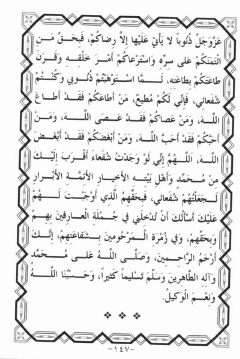 عَزَّ وَجَلَّ ذُنُوباً لا يَأْتِي عَلَيْها إِلاَّ رِضاكُمْ، فَبِحَقِّ مَنِ
ائْتَمَنَكُمْ عَلى سِرِّهِ وَاسْتَرْعاكُمْ أَمْرَ خَلْقِهِ وَقَرَنَ
طاعَتَكُمْ بِطاعَتِهِ، لَمَّا اسْتَوْهَبْتُمْ ذُنُوبِي وَكُنْتُمْ
شُفَعائِي، فَإِنِّي لَكُمْ مُطِيعٌ، مَنْ أَطاعَكُمْ فَقَدْ أَطاعَ
اللهَ، وَمَنْ عَصاكُمْ فَقَدْ عَصَى اللهَ، وَمَنْ
أَحَبَّكُمْ فَقَدْ أَحَبَّ اللهَ، وَمَنْ أَبْغَضَكُمْ فَقَدْ أَبْغَضَ
اللهَ، اَللّهُمَّ إِنِّي لَوْ وَجَدْتُ شُفَعاءَ أَقْرَبَ إِلَيْكَ
مِنْ مُحَمَّدٍ وَأَهْلِ بَيْتِهِ الأَخْيارِ الأَئِمَّةِ الأَبْرارِ
لَجَعَلْتُهُمْ شُفَعائِي، فَبِحَقِّهِمُ الَّذِي أَوْجَبْتَ لَهُمْ
عَلَيْكَ أَسْأَلُكَ أَنْ تُدْخِلَنِي فِي جُمْلَةِ الْعارِفِينَ بِهِمْ
وَبِحَقِّهِمْ، وَفِي زُمْرَةِ الْمَرْحُومِينَ بِشَفاعَتِهِمْ، إِنَّكَ
أَرْحَمُ الرَّاحِمِينَ، وَصَلَّى اللهُ عَلى مُحَمَّدٍ
وَآلِهِ الطَّاهِرِينَ وَسَلَّمَ تَسْلِيماً كَثِيراً، وَحَسْبُنَا اللهُ
وَنِعْمَ الْوَكِيلُ.
-١٤٧-